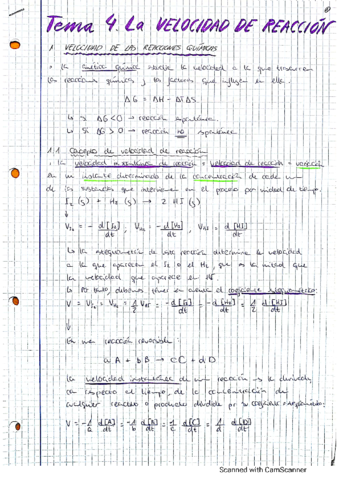 Tema 4. La VELOCIDAD DE REACCIÓN
1. VELOCIDAD DE LAS REACCIONES QUÍMICAS
• La cinética química estudia la velocidad a la que transcurren
las reacciones químicas y los factores que influyen en ella.
ΔG = ΔH - TΔS
↳ si ΔG<0 → reacción espontánea.
↳ Si ΔG>0 → reacción no espontánea.
1.1. Concepto de velocidad de reacción
• La velocidad instantánea de reacción o velocidad de reacción = variación
en un instante determinado de la concentración de cada una
de las sustancias que intervienen en el proceso por unidad de tiempo.
I₂ (g) + H₂ (g) → 2 HI (g)
↓
V_I₂ = - d[I₂]/dt , V_H₂ = - d[H₂]/dt , V_HI = d[HI]/dt
↳ La estequiometría de esta reacción determina la velocidad
a la que aparecen el I₂ o el H₂, que es la mitad que
la velocidad que aparece en HI
↳ Por tanto, debemos tener en cuenta el coeficiente estequiométrico:
V = V_I₂ = V_H₂ = 1/2 V_HI = - d[I₂]/dt = - d[H₂]/dt = 1/2 d[HI]/dt
↓
En una reacción reversible:
a A + b B → c C + d D
La velocidad instantánea de una reacción es la derivada,
con respecto al tiempo, de la concentración de
cualquier reactivo o producto dividida por su coeficiente estequiométrico:
V = -1/a d[A]/dt = -1/b d[B]/dt = 1/c d[C]/dt = 1/d d[D]/dt
Scanned with CamScanner